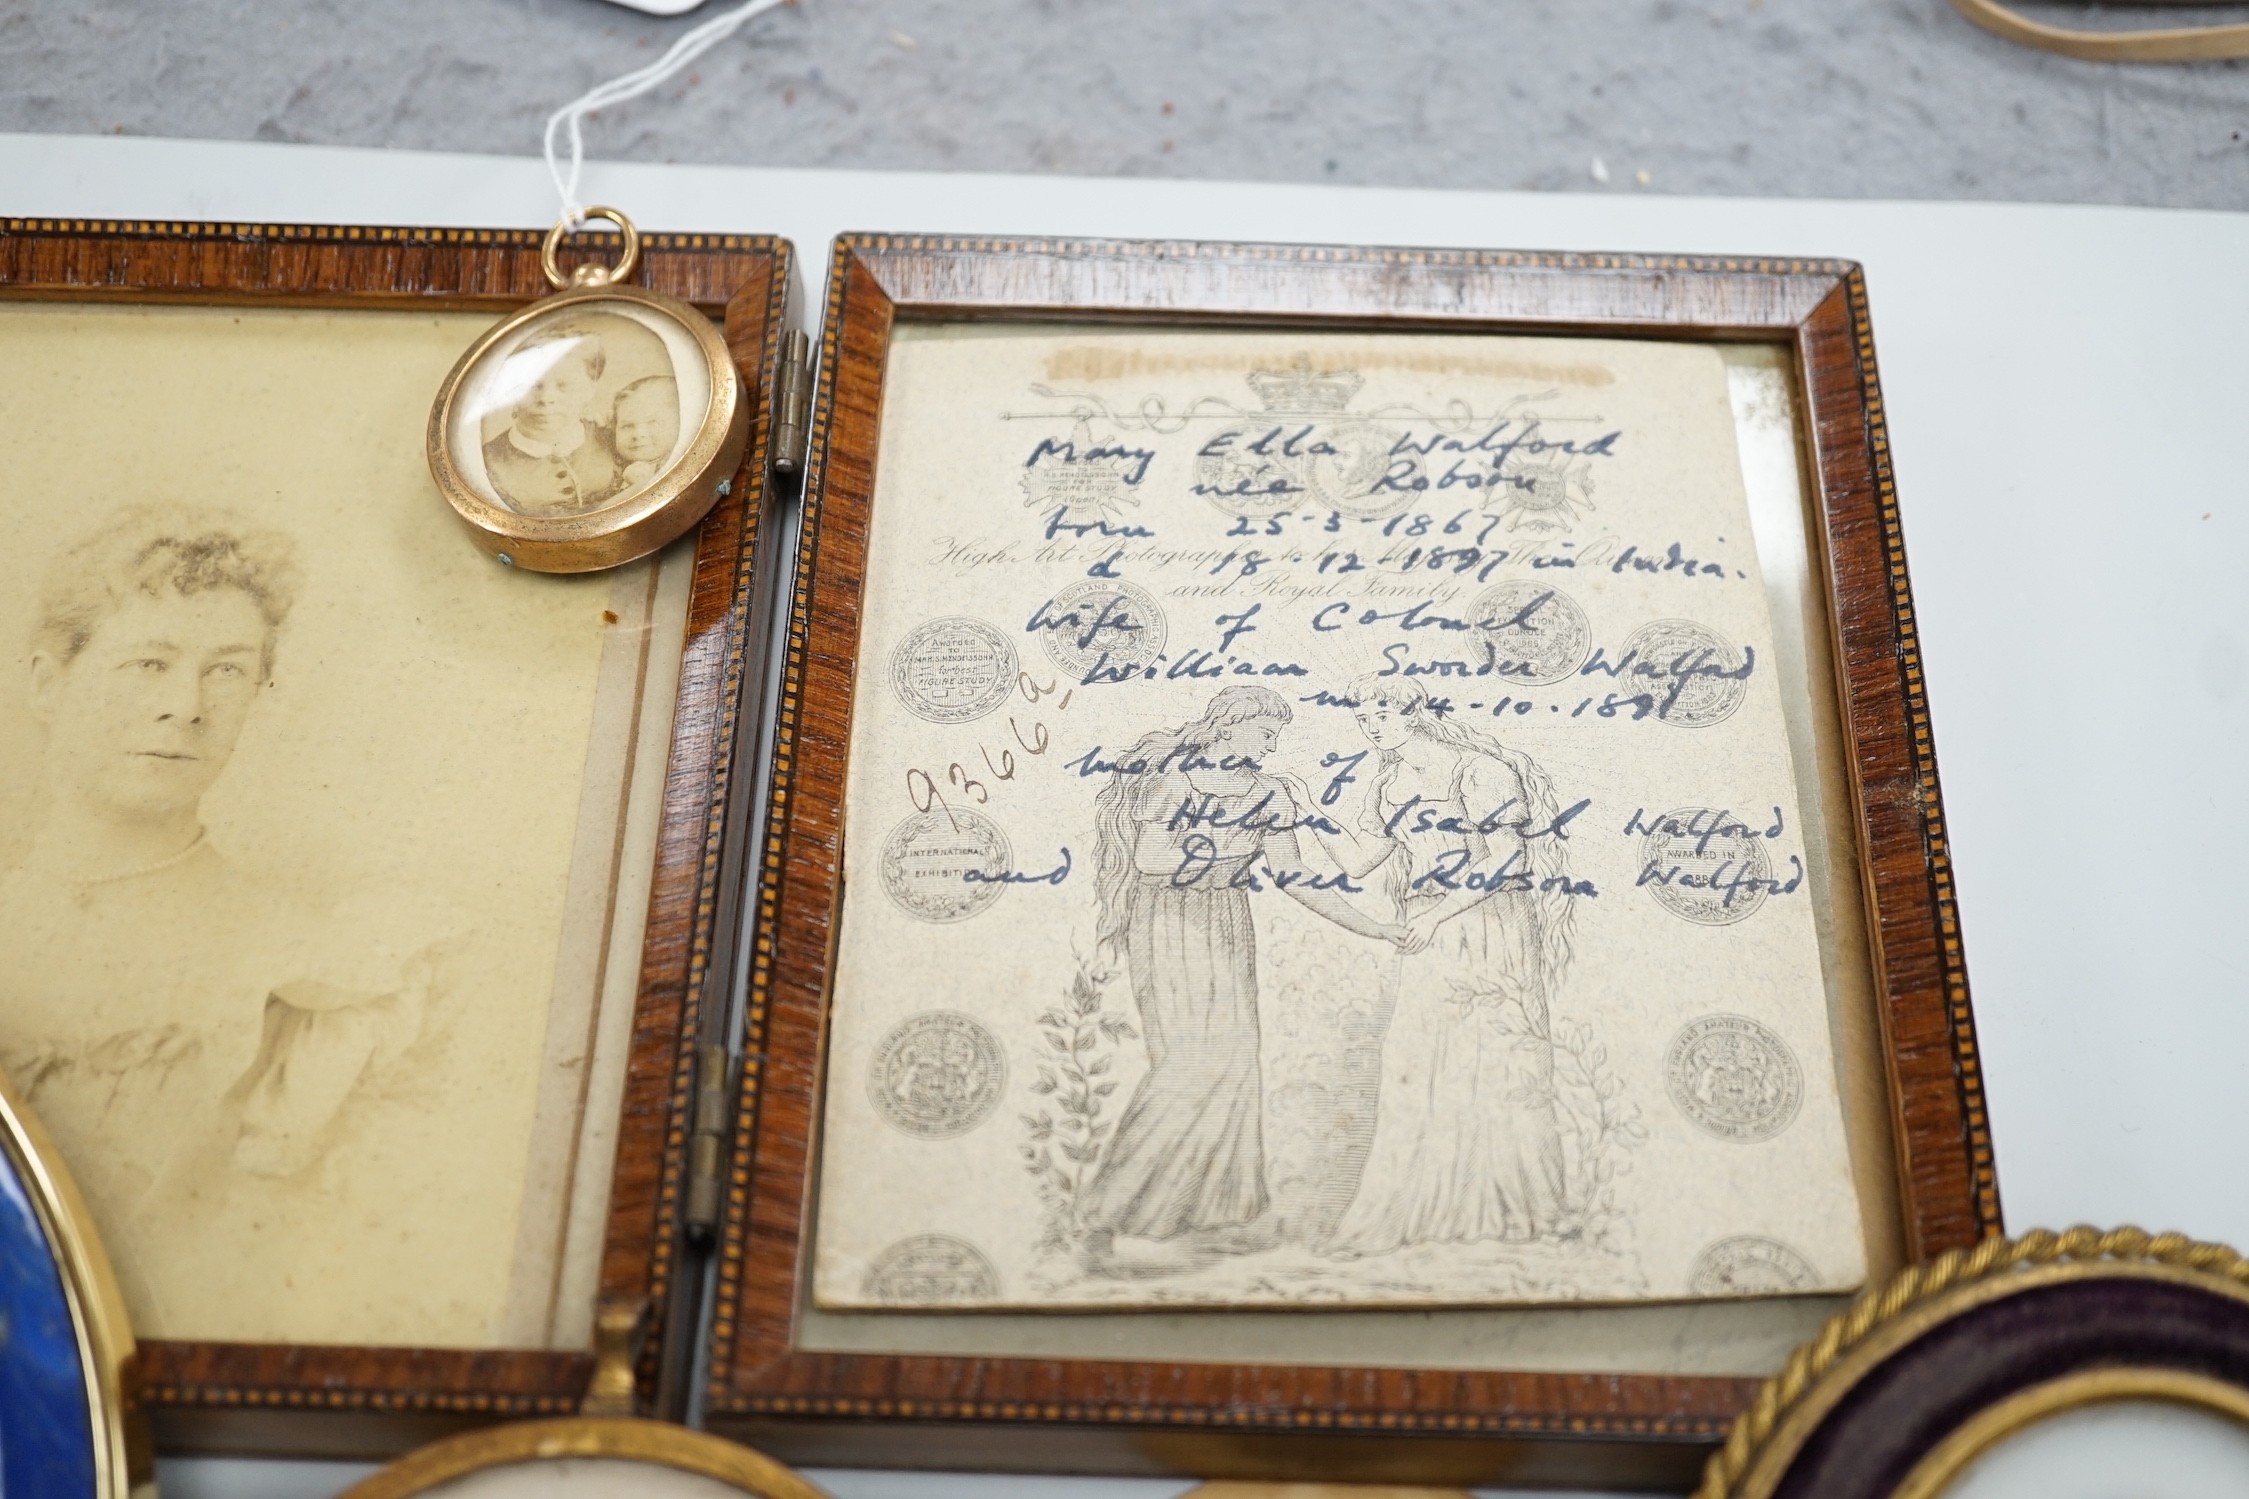 Mary Ella Walford
née Robson
born 25-3-1867
High Art Photographs to Her Majesty The Queen
d 18-12-1897 in India.
and Royal Family.
wife of Colonel
William Sworder Walford
m. 14-10-1891
9366a
mother of
Helen Isabel Walford
and Oliver Robson Walford
INTERNATIONAL
EXHIBITION
AWARDED IN